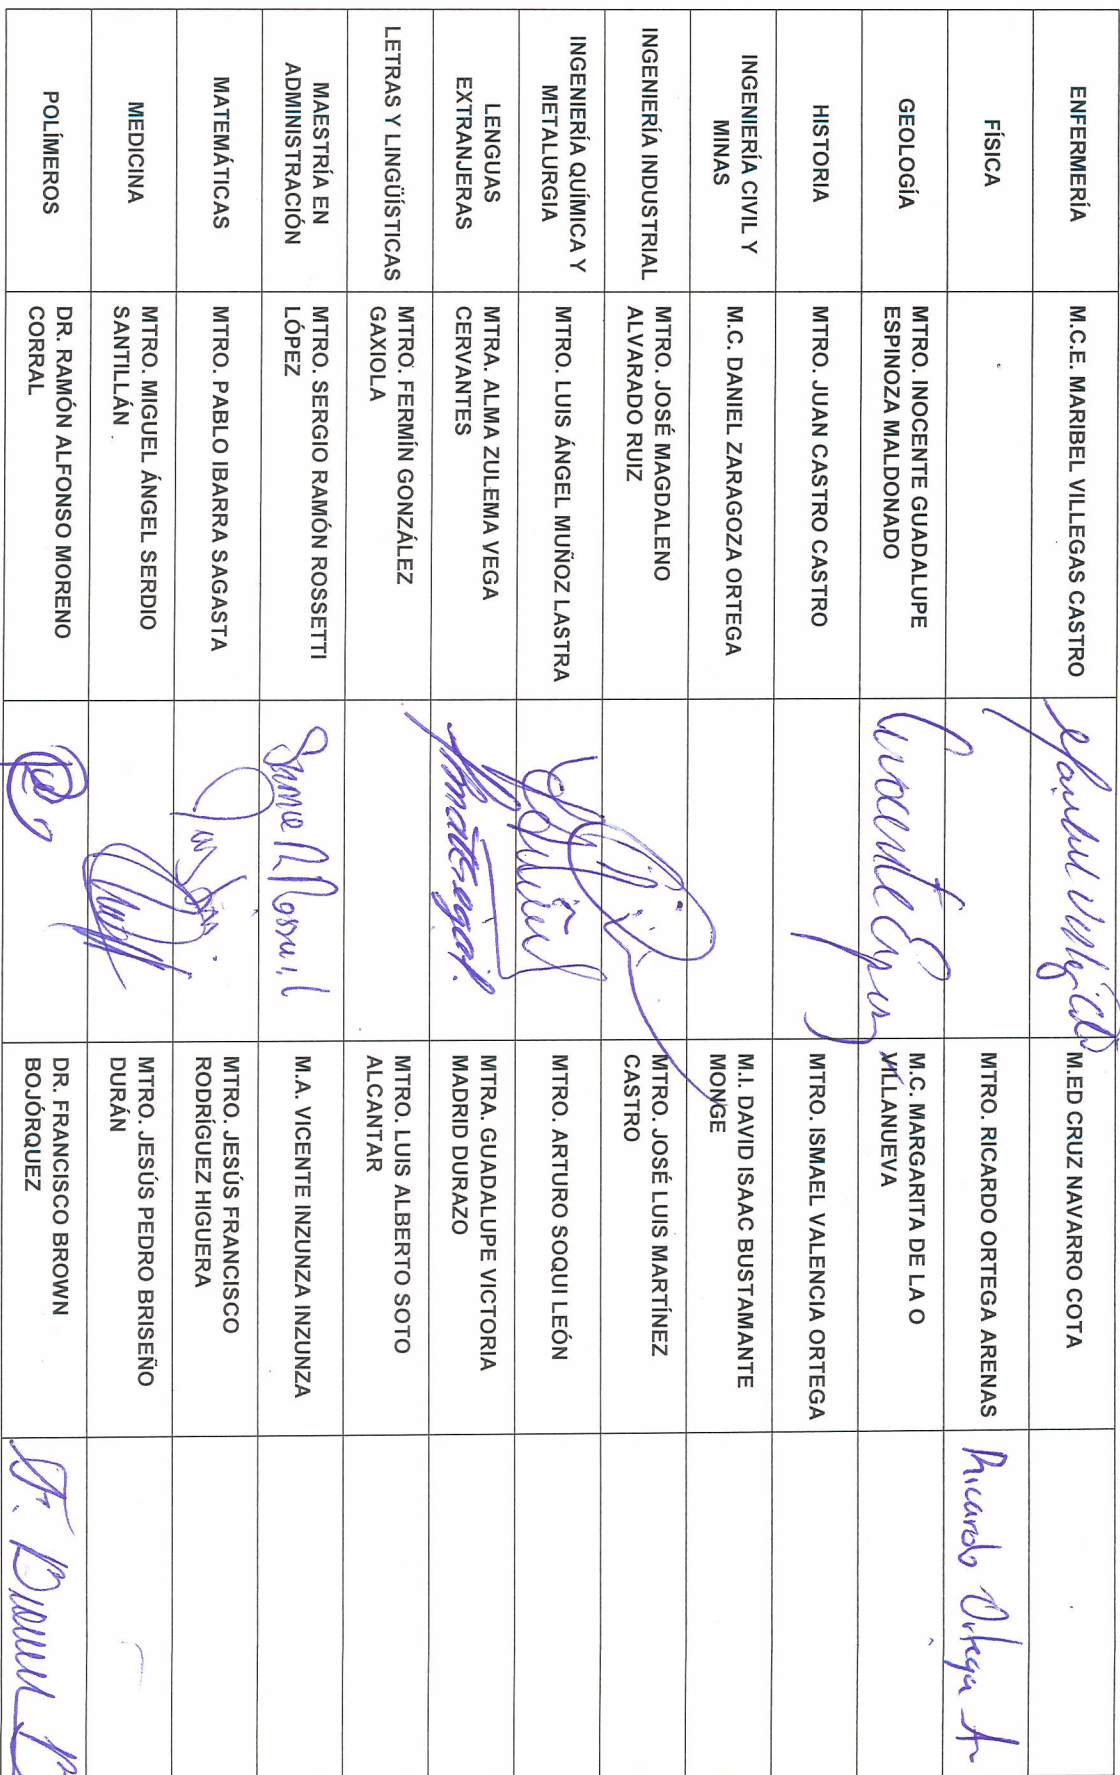 ENFERMERÍA
M.C.E. MARIBEL VILLEGAS CASTRO
M.ED CRUZ NAVARRO COTA
FÍSICA
MTRO. RICARDO ORTEGA ARENAS
Ricardo Ortega A
GEOLOGÍA
MTRO. INOCENTE GUADALUPE
ESPINOZA MALDONADO
M.C. MARGARITA DE LA O
VILLANUEVA
HISTORIA
MTRO. JUAN CASTRO CASTRO
MTRO. ISMAEL VALENCIA ORTEGA
INGENIERÍA CIVIL Y
MINAS
M.C. DANIEL ZARAGOZA ORTEGA
M.I. DAVID ISAAC BUSTAMANTE
MONGE
INGENIERÍA INDUSTRIAL
MTRO. JOSÉ MAGDALENO
ALVARADO RUIZ
MTRO. JOSÉ LUIS MARTÍNEZ
CASTRO
INGENIERÍA QUÍMICA Y
METALURGIA
MTRO. LUIS ÁNGEL MUÑOZ LASTRA
MTRO. ARTURO SOQUI LEÓN
LENGUAS
EXTRANJERAS
MTRA. ALMA ZULEMA VEGA
CERVANTES
MTRA. GUADALUPE VICTORIA
MADRID DURAZO
LETRAS Y LINGÜÍSTICAS
MTRO. FERMÍN GONZÁLEZ
GAXIOLA
MTRO. LUIS ALBERTO SOTO
ALCANTAR
MAESTRÍA EN
ADMINISTRACIÓN
MTRO. SERGIO RAMÓN ROSSETTI
LÓPEZ
M.A. VICENTE INZUNZA INZUNZA
MATEMÁTICAS
MTRO. PABLO IBARRA SAGASTA
MTRO. JESÚS FRANCISCO
RODRÍGUEZ HIGUERA
MEDICINA
MTRO. MIGUEL ÁNGEL SERDIO
SANTILLÁN
MTRO. JESÚS PEDRO BRISEÑO
DURÁN
POLÍMEROS
DR. RAMÓN ALFONSO MORENO
CORRAL
DR. FRANCISCO BROWN
BOJÓRQUEZ